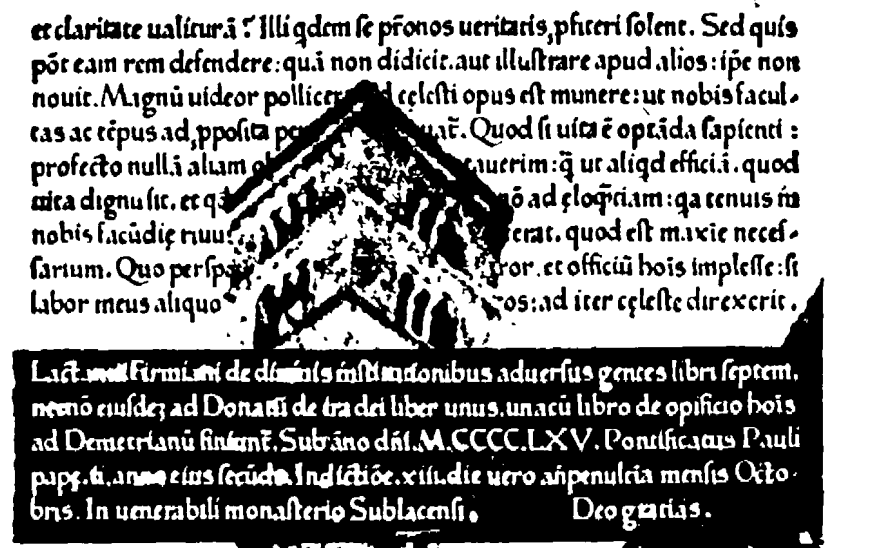 et claritate ualiturā? Illi qdem se p̄ronos ueritatis, pfiteri solent. Sed quis
pōt eam rem defendere: quā non didicit. aut illustrare apud alios: ip̄e non
nouit. Magnū uideor pollicer cęlesti opus est munere: ut nobis facul-
tas ac tēpus ad ,pposita uat̄. Quod si uita ē optāda sapienti:
profecto nullā aliam cauerim: q̄ ut aliqd efficiā. quod
uita dignū sit. et nō ad ęloq̄ntiam: qa tenuis in
nobis facūdię riuus erat. quod est maxie neces-
sarium. Quo ror. et officiū hois implesse: si
labor meus aliquo os: ad iter cęleste direxerit.
Lact Firmiani de diuinis institutionibus aduersus gentes libri septem.
necnō eiusdez ad Donatū de ira dei liber unus. unacū libro de opificio hois
ad Demetrianū finiunt̄. Sub āno dn̄i. M.CCCC.LXV. Pontificatus Pauli
papę. ii. anno eius secūdo. Indictiōe. xiii. die uero an̄penultia mensis Octo-
bris. In uenerabili monasterio Sublacensi. Deo gratias.